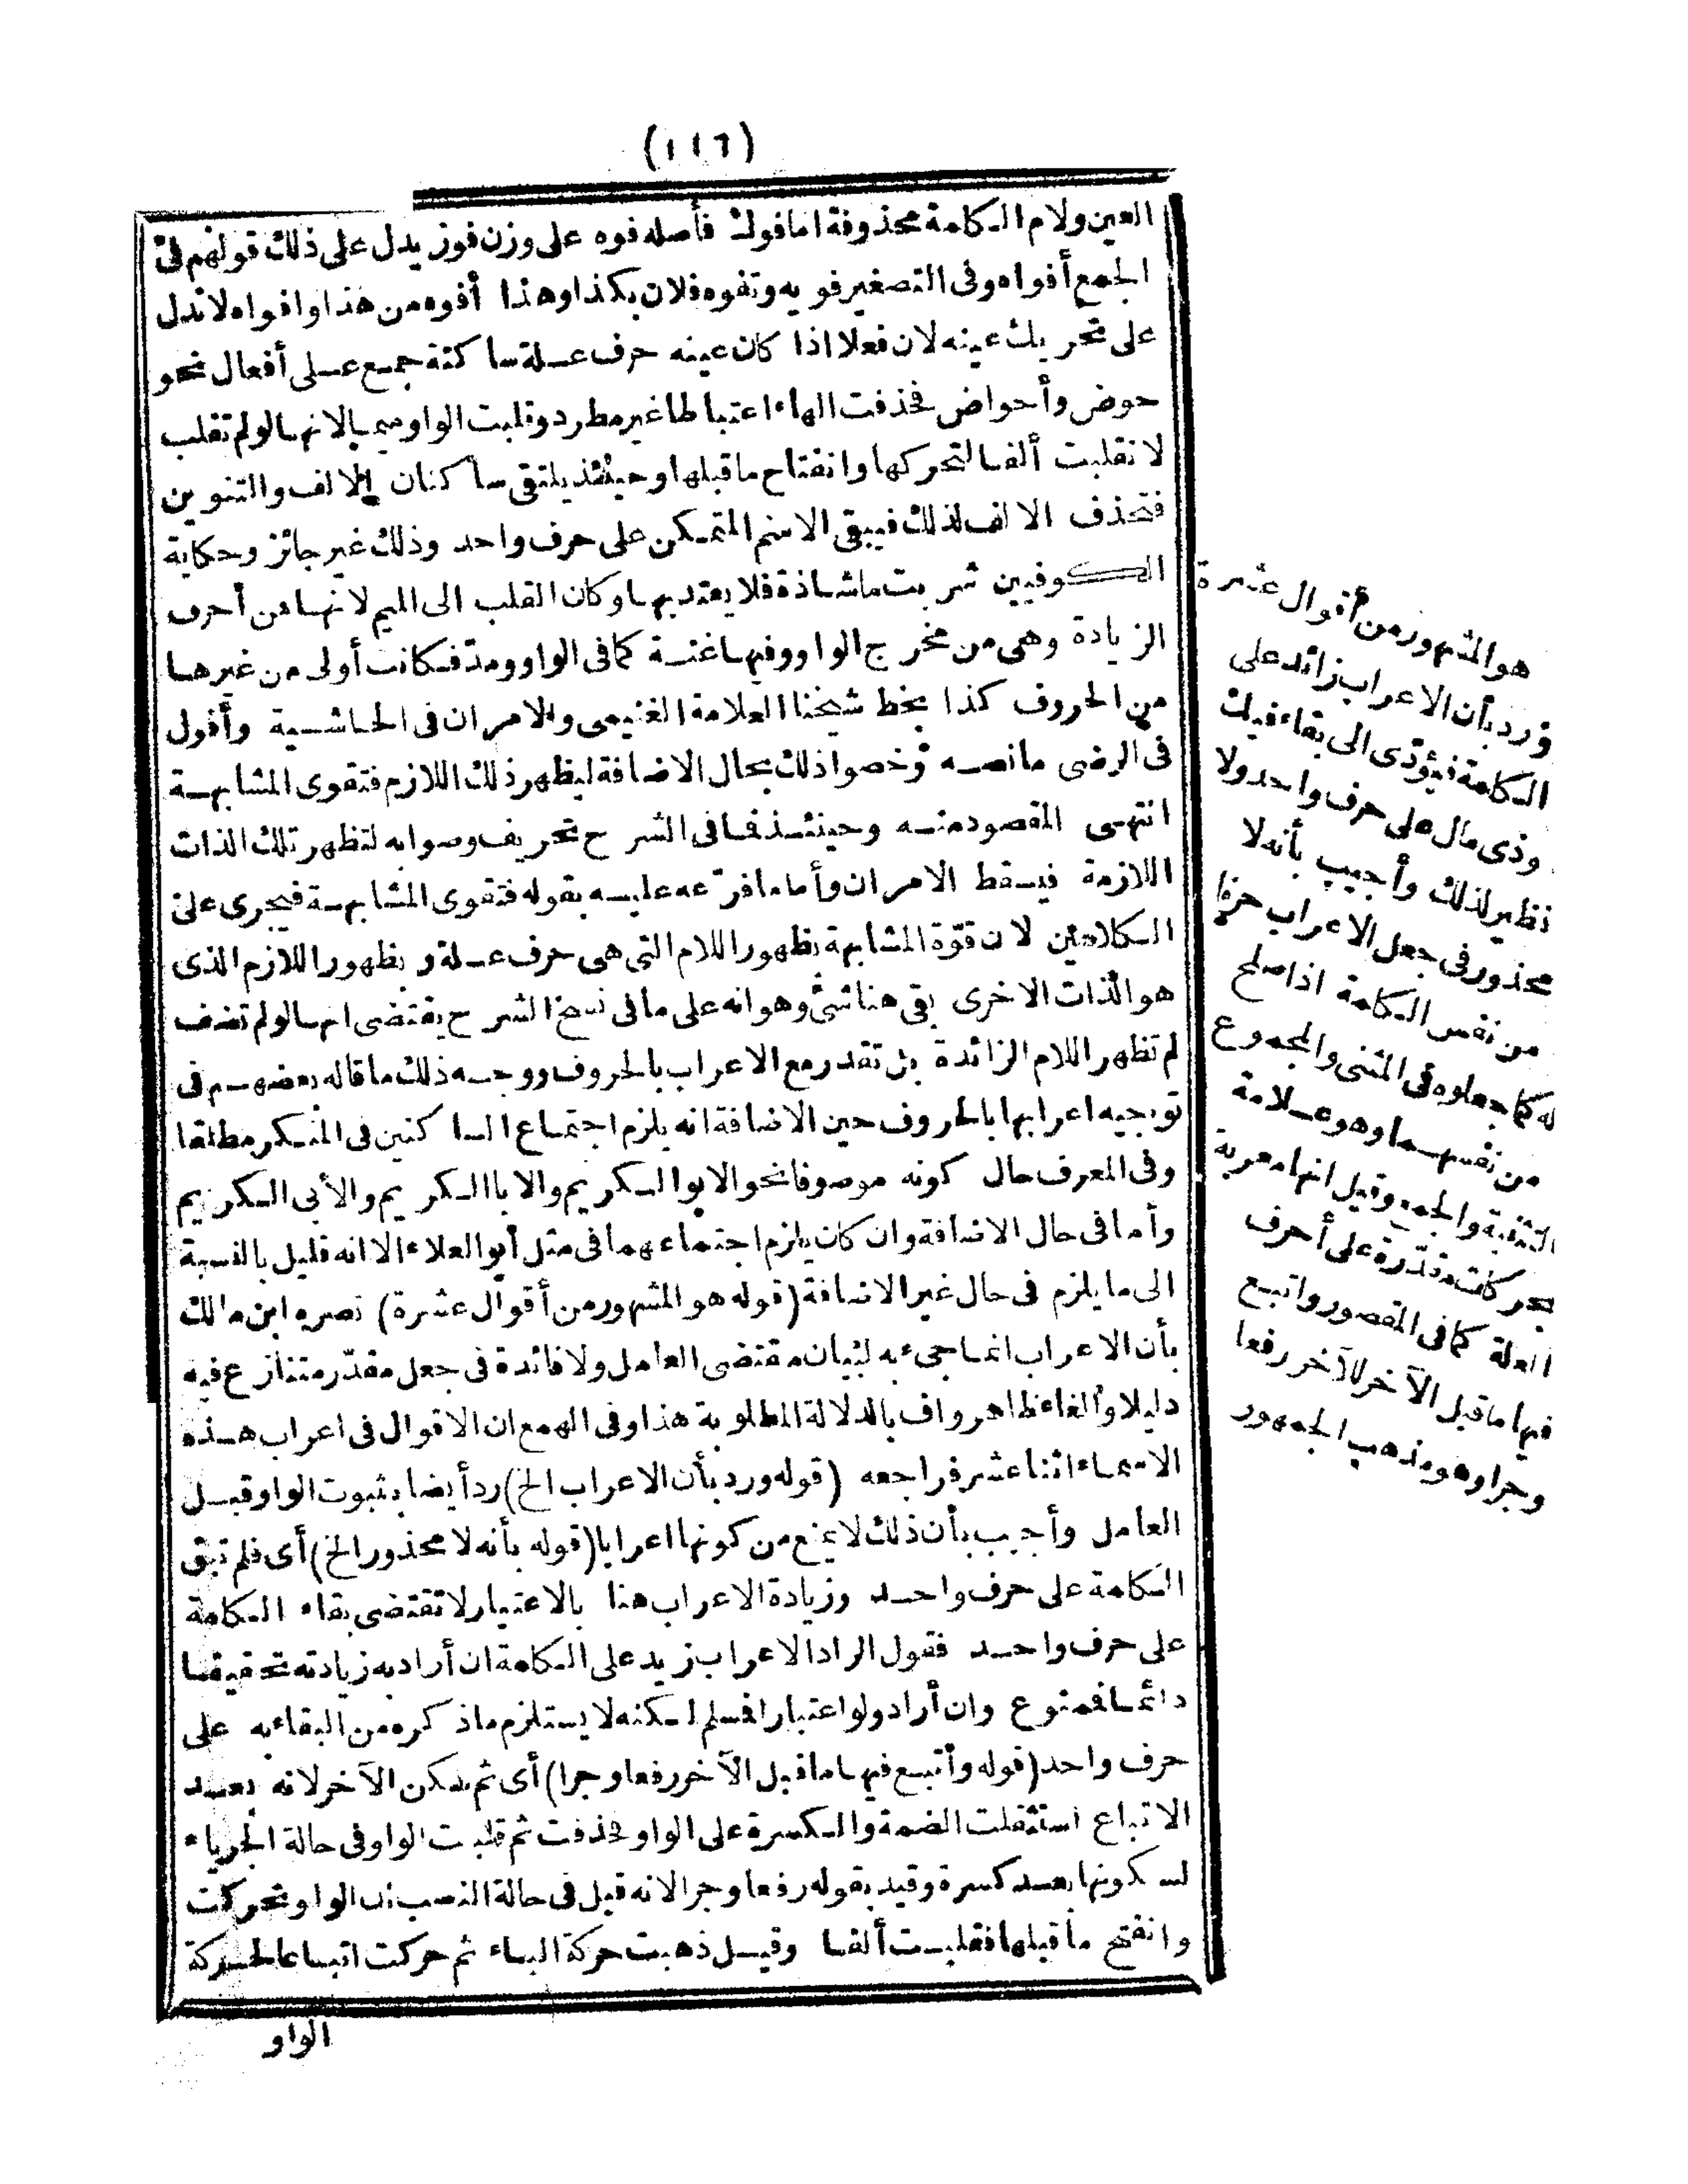 (١١٦)
العين ولام الكلمة محذوفة اما فوك فأصله فوه على وزن فوز يدل على ذلك قولهم فى
الجمع أفواه وفى التصغير فويه وتفوه فلان بكذا وهذا أفوه من هذا وافواه لا تدل
على تحريك عينه لان فعلا اذا كان عينه حرف علة ساكنة جمع على أفعال نحو
حوض وأحواض فحذفت الهاء اعتباطا غير مطرد وقلبت الواو ميما لانها لو لم تقلب
لانقلبت ألفا لتحركها وانفتاح ما قبلها وحينئذ يلتقى ساكنان الالف والتنوين
فتحذف الالف لذلك فيبقى الاسم المتمكن على حرف واحد وذلك غير جائز وحكاية
الكوفيين شربت ما شاذة فلا يعتد بها وكان القلب الى الميم لانها من أحرف
الزيادة وهى من مخرج الواو وفيها غنة كما فى الواو ومد فكانت أولى من غيرها
من الحروف كذا بخط شيخنا العلامة الغنيمى والامران فى الحاشية وأقول
فى الرضى ما نصه وخصوا ذلك بحال الاضافة ليظهر ذلك اللازم فتقوى المشابهة
انتهى المقصود منه وحينئذ فما فى الشرح تحريف وصوابه لتظهر تلك الذات
اللازمة فيسقط الامران وأما ما فرّعه عليه بقوله فتقوى المشابهة فيجرى على
الكلامين لان قوّة المشابهة بظهور اللام التى هى حرف علة وبظهور اللازم الذى
هو الذات الاخرى بقى هنا شئ وهو انه على ما فى نسخ الشرح يقتضى انها لو لم تضف
لم تظهر اللام الزائدة بل تقدر مع الاعراب بالحروف ووجه ذلك ما قاله بعضهم فى
توجيه اعرابها بالحروف حين الاضافة انه يلزم اجتماع الساكنين فى المنكر مطلقا
وفى المعرف حال كونه موصوفا نحو الابو الكريم والابا الكريم والأبى الكريم
وأما فى حال الاضافة وان كان يلزم اجتماعهما فى مثل أبو العلاء الا انه قليل بالنسبة
الى ما يلزم فى حال غير الاضافة (قوله هو المشهور من أقوال عشرة) نصره ابن مالك
بأن الاعراب انما جىء به لبيان مقتضى العامل ولا فائدة فى جعل مقدّر متنازع فيه
دليلا والغاء ظاهر واف بالدلالة المطلوبة هذا وفى الهمع ان الاقوال فى اعراب هذه
الاسماء اثنا عشر فراجعه (قوله ورد بأن الاعراب الخ) رد أيضا بثبوت الواو قبل
العامل وأجيب بأن ذلك لا يمنع من كونها اعرابا (قوله بأنه لا محذور الخ) أى فلم تبق
الكلمة على حرف واحد وزيادة الاعراب هنا بالاعتبار لا تقتضى بقاء الكلمة
على حرف واحد فقول الراد الاعراب زيد على الكلمة ان أراد به زيادته تحقيقا
دائما فممنوع وان أراد ولو اعتبارا فسلم لكنه لا يستلزم ما ذكره من البقاء به على
حرف واحد (قوله وأتبع فيها ما قبل الآخر رفعا وجرا) أى ثم سكن الآخر لانه بعد
الاتباع استثقلت الضمة والكسرة على الواو فحذفت ثم قلبت الواو فى حالة الجر ياء
لسكونها بعد كسرة وقيد بقوله رفعا وجرا لانه قيل فى حالة النصب ان الواو تحركت
وانفتح ما قبلها فقلبت ألفا وقيل ذهبت حركة الباء ثم حركت اتباعا لحركة
الواو
هو المشهور من أقوال عشرة
ورد بأن الاعراب زائد على
الكلمة فيؤدّى الى بقاء فيك
وذى مال على حرف واحد ولا
نظير لذلك وأجيب بأنه لا
محذور فى جعل الاعراب حرفا
من نفس الكلمة اذا صلح
له كما جعلوه فى المثنى والمجموع
من نفسهما وهو علامة
التثنية والجمع وقيل انها معربة
بحركات مقدّرة على أحرف
العلة كما فى المقصور واتبع
فيها ما قبل الآخر للآخر رفعا
وجرا وهو مذهب الجمهور